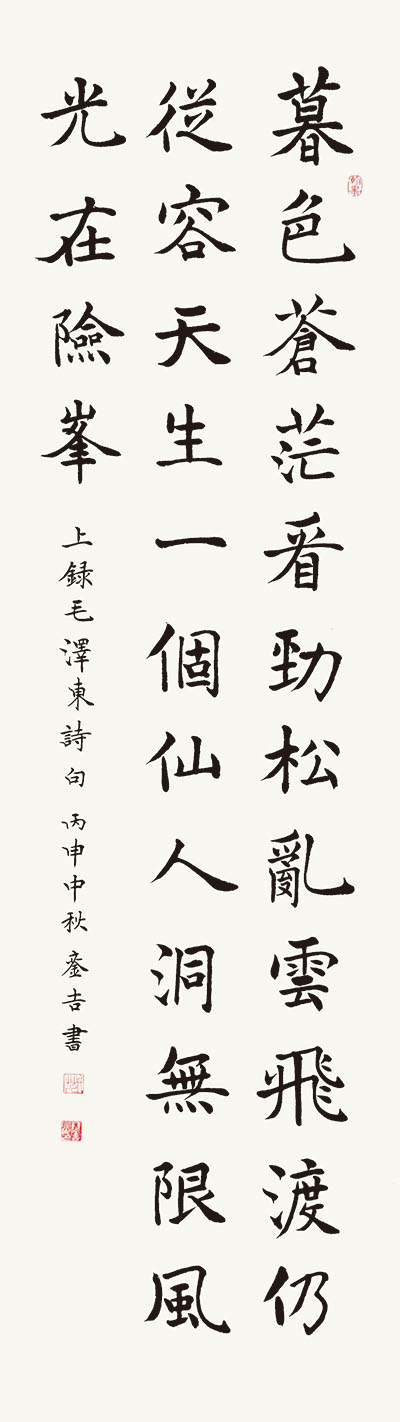 暮色蒼茫看勁松亂雲飛渡仍
従容天生一個仙人洞無限風
光在險峯
上録毛澤東詩句 丙申中秋 吉書